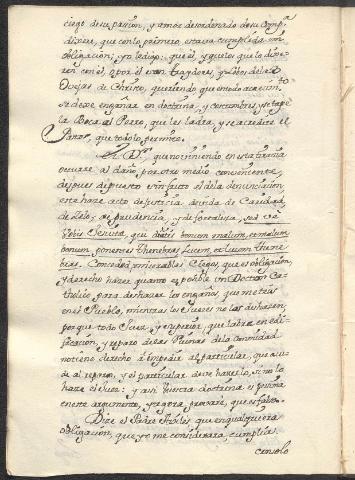 ciego de su passion, y amor desordenado de su Comp.ª
dixere, que con lo primero estava cumplida mi
obligacion; yo le digo: que el, y aquelos que lo dixe-
ren con el, por el eran traydores, y lobos de las
Ovejas de Christo, queriendo que en todo
se dexe engañar en doctrina, y costumbres, y se tape
la Boca al Perro, que les ladra, y se acredite el
Pastor, que todo lo permite.
El D.r que no viniendo en esta trama
ocurre al daño, por otro medio conveniente,
despues de puesto sin fruto el de la denunciacion,
este haze acto de justicia, de vida de Caridad,
de Zelo, de prudencia, y de fortaleza, sed vae
Vobis Jesuita, qui dicitis bonum malum, et malum
bonum, ponentes thenebras Lucem, et Lucem thene-
bras. Conoced miserables Ciegos, que es obligacion,
y derecho hazer quanto es posible un Doctor Ca-
tholico para deshazer los engaños, que meteis
en el Pueblo, mientras los Juezes no las deshazen,
por que todo Juez, y superior, que labra en edi-
ficacion, y reparo de las Ruinas de la Comunidad
no tiene derecho á impedir al particular, que acu-
da al reparo, y el particular deve hazerlo, si no lo
haze el Juez: y assi vuestra doctrina es
en este argumento, y agora provaré, que es falso.
Dize el Padre Aviles que en qualquiera
obligacion, que yo me considerara, cumplia
consolo